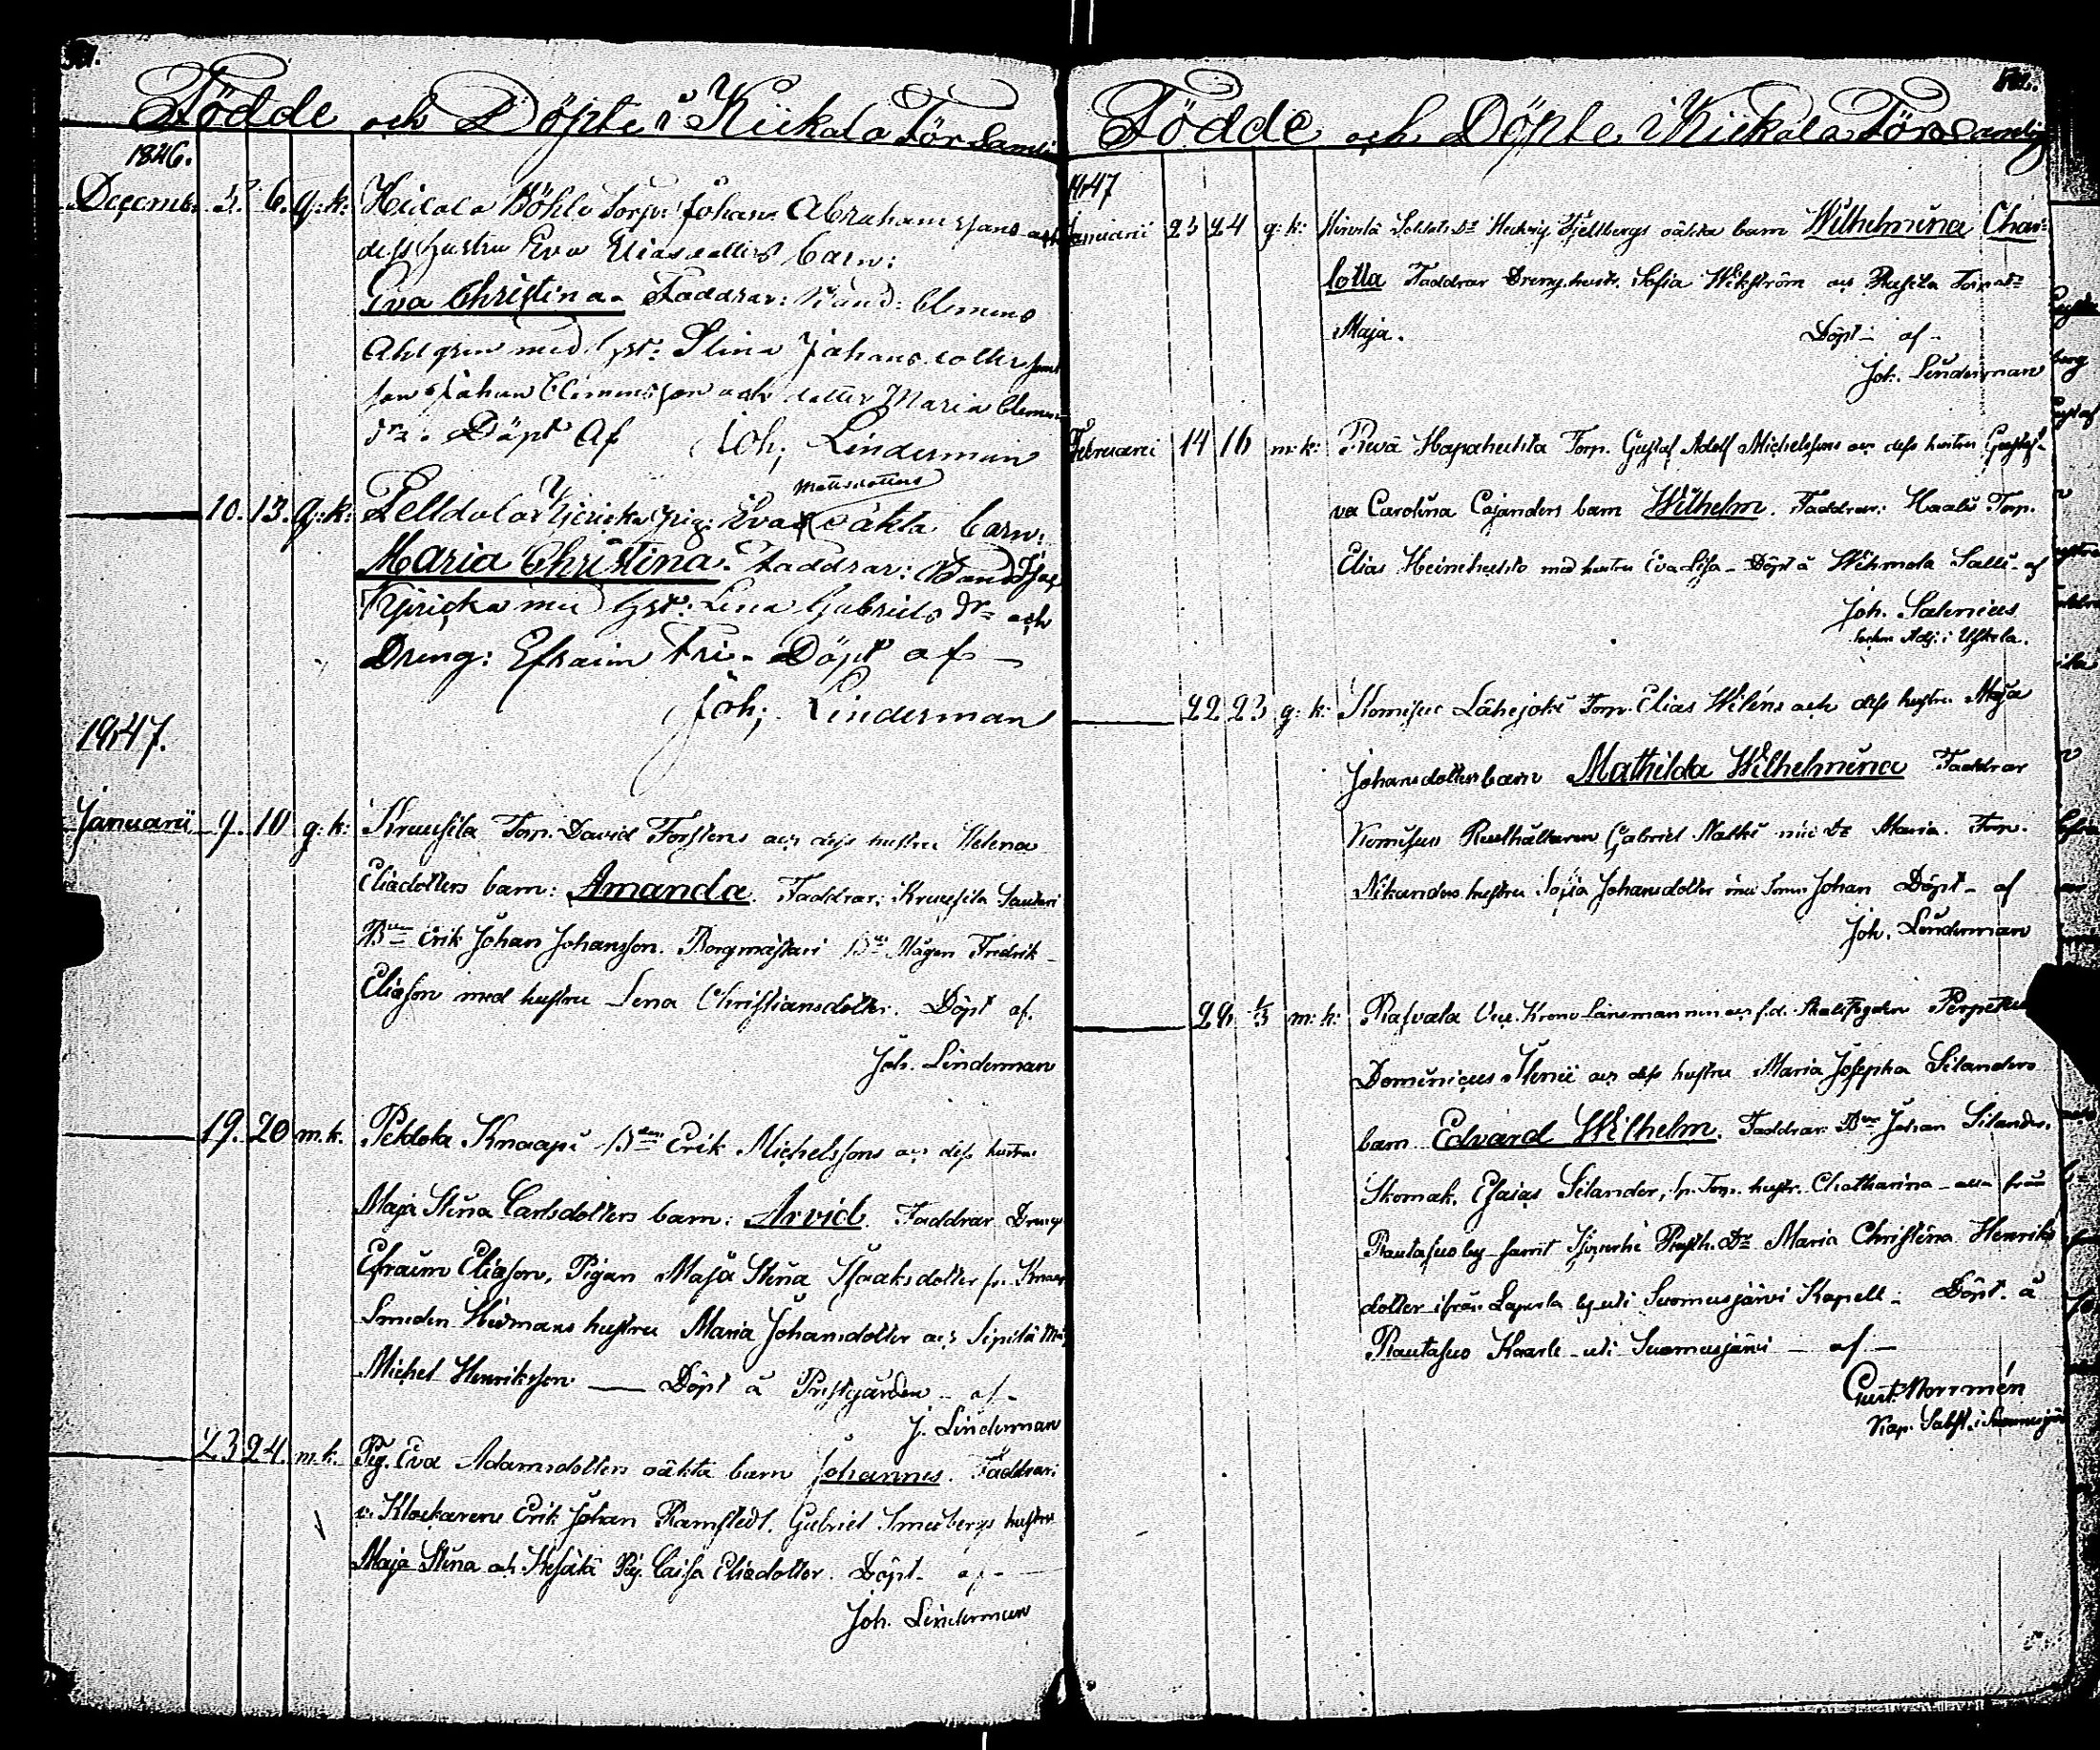 Födde och Döpte i Kiikala Församl:
1846.
Decemb. 5. 6. q:k: Hidola Böhle Torp: Johan Abrahamssons och
dess hustru Eva Eliasdotters barn:
Eva Christina. Faddrar: Bänd: Clemens
Ahlgren med hst: Stina Johansdotter samt
son Johan Clemensson och dotter Maria Clemens
dr. Döpt Af Joh; Linderman
10. 13. q:k: Pelldola Yjericka Pig: Eva Mattsdotters oäkta barn:
Maria Christina. Faddrar: Bond
Yjericka med hst: Lena Gabriels dr och
Dreng: Efraim Fri. Döpt af
Joh; Linderman
1847.
Januarii 9. 10 q:k: Kruusila Torp. David Forstens och dess hustru Helena
Eliædotters barn: Amanda. Faddrar: Kruusila
Erik Johan Johansson. Borgmästari Mågen Fredrik
Eliæson med hustru Lena Christiansdotter. Döpt af.
Joh. Linderman
19. 20 m.k. Peldola Knaapi Erik Michelssons och dess hustru
Maja Stina Carlsdotters barn: Arvid. Faddrar Dreng
Efraim Eliæson, Pigan Maja Stina Isaaksdotter fr.
Smeden Widmans hustru Maria Johansdotter och Sipilä
Michel Henriksson — Döpt å Prestgården - af -
J. Linderman
23 24 m.k. Pig. Eva Adamsdotters oäkta barn Johannes. Faddrar:
v. Klockaren Erik Johan Ramstedt. Gabriel Smedbergs hustru
Maja Stina och Pig. Caisa Eliædotter. Döpt - af -
Joh. Linderman
Födde och Döpte i Kiikala Församling
1847
Januarii 23 24 q:k: Hirvelä Soldats Dr Hedvig Fjellbergs oäkta barn Wilhelmina Char-
lotta Faddrar Dreng hustr. Sofia Wikström och
Maja. Döpt - af -
Joh. Linderman
Februarii 14 16 m:k: Hapahuhta Torp. Gustaf Adolf Michelssons och dess hustru Gustaf-
va Carolina Cajanders barn Wilhelm. Faddrar: Torp.
Elias Heinehuhto med hustru Eva Lisa - Döpt å Salli - af
Joh. Salenius
Adj. i Uskela.
22 23 q:k: Komisuo Lähejoki Torp. Elias Wiléns och dess hustru Maja
Johansdotters barn Mathilda Wilhelmina Faddrar
Komisuo Gabriel med Dr Maria. Torp.
Nikanders hustru Sofia Johansdotter med Sonen Johan Döpt - af
Joh. Linderman
m:k: Rasvala Vice Krono Länsmannen och
Dominicus och dess hustru Maria Josepha Silanders
barn Edvard Wilhelm. Faddrar: Johan Silander,
Skomak. Esaias Silander, Torp. hustr. Chatharina - alla från
Rautasuo by samt Maria Christina Henriks
dotter ifrån Laperla by uti Suomusjärvi Kapell - Döpt - å
Rautasuo Kaarle - uti Suomusjärvi - af -
Gust. Norrmén
Kap. i Suomusjär